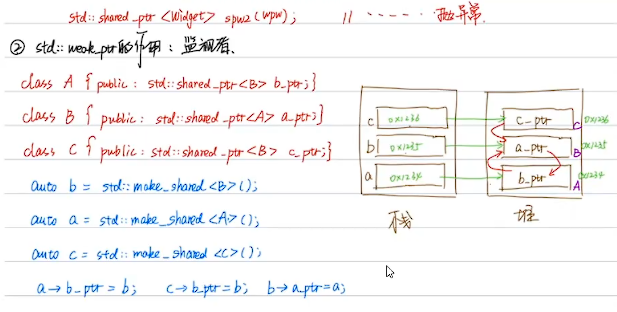 std::shared_ptr <Widget> spw2 (wpw); // ------- 抛异常.
② std::weak_ptr的作用: 监视者.
class A { public: std::shared_ptr<B> b_ptr;}
class B { public: std::shared_ptr<A> a_ptr;}
class C { public: std::shared_ptr<B> c_ptr;}
auto b = std::make_shared<B>();
auto a = std::make_shared<A>();
auto c = std::make_shared<C>();
a→b_ptr = b; c→b_ptr=b; b→a_ptr=a;
c 0x1236 c_ptr C 0x1236
b 0x1235 a_ptr B 0x1235
a 0x1234 b_ptr A 0x1234
栈 堆